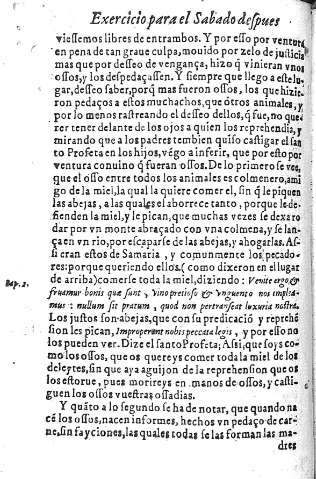 Exercicio para el Sabado despues
viessemos libres de entrambos. Y por esso por ventura
en pena de tan graue culpa, mouido por zelo de justicia
mas que por desseo de vengança, hizo q̃ vinieran vnos
ossos, y los despedaçassen. Y siempre que llego a este lu-
gar, desseo saber, porq̃ mas fueron ossos, los que hizie-
ron pedaços a estos muchachos, que otros animales, y,
por lo menos rastreando el desseo dellos, q̃ fue, no que
rer tener delante de los ojos a quien los reprehendia, y
mirando que a los padres tembien quiso castigar el san
to Profeta en los hijos, vẽgo a inferir, que por esto por
ventura conuino q̃ fueran ossos. De lo primero se vee,
que el osso entre todos los animales es colmenero, ami
go de la miel, la qual la quiere comer el, sin q̃ le piquen
las abejas, a las quales el aborrece tanto, porque le de-
fienden la miel, y le pican, que muchas vezes se dexa ro
dar por vn monte abraçado con vna colmena, y se lan-
ça en vn rio, por escaparse de las abejas, y ahogarlas. As-
si eran estos de Samaria, y comunmente los pecado-
res: porque queriendo ellos (como dixeron en el lugar
de arriba) comerse toda la miel, diziendo: Venite ergo &
Sap. 2. fruamur bonis quæ sunt, vino pretioso & vnguento nos implea-
mus: nullum sit pratum, quod non pertranseat luxuria nostra.
Los justos son abejas, que con su predicació y reprehẽ
sion les pican, Improperant nobis peccata legis, y por esso no
los pueden ver. Dize el santo Profeta; Assi, que soys co-
mo los ossos, que os quereys comer toda la miel de los
deleytes, sin que aya aguijon de la reprehension que os
los estorue, pues morireys en manos de ossos, y casti-
guen los ossos vuestras ossadias.
Y quãto a lo segundo se ha de notar, que quando na
cẽ los ossos, nacen informes, hechos vn pedaço de car-
ne, sin fayciones, las quales todas se las forman las ma-
dres